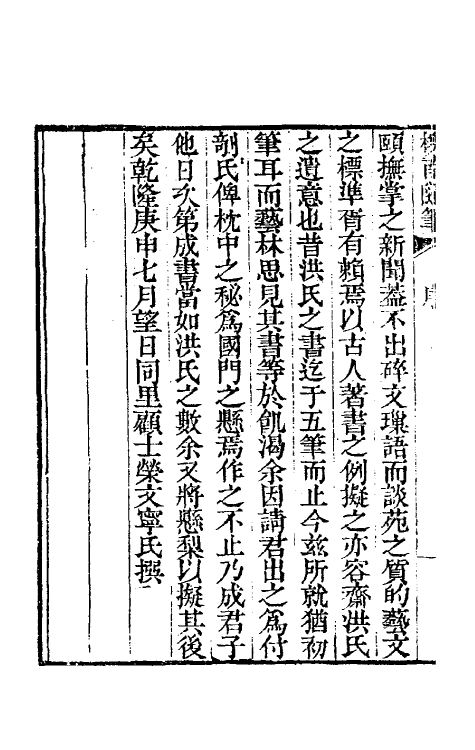 南隨筆 序
頤撫掌之新聞蓋不出碎文璅語而談苑之質的藝文
之標準胥有賴焉以古人著書之例擬之亦容齋洪氏
之遺意也昔洪氏之書迄于五筆而止今玆所就猶初
筆耳而藝林思見其書等於飢渴余因請君出之爲付
剞氏俾枕中之秘爲國門之懸焉作之不止乃成君子
他日次第成書當如洪氏之數余又將懸梨以擬其後
矣乾隆庚申七月望日同里顧士榮文寧氏撰